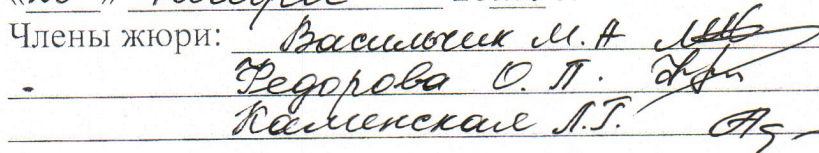 Члены жюри: Васильчик М. А
Федорова О. П.
Каменская Л. Г.